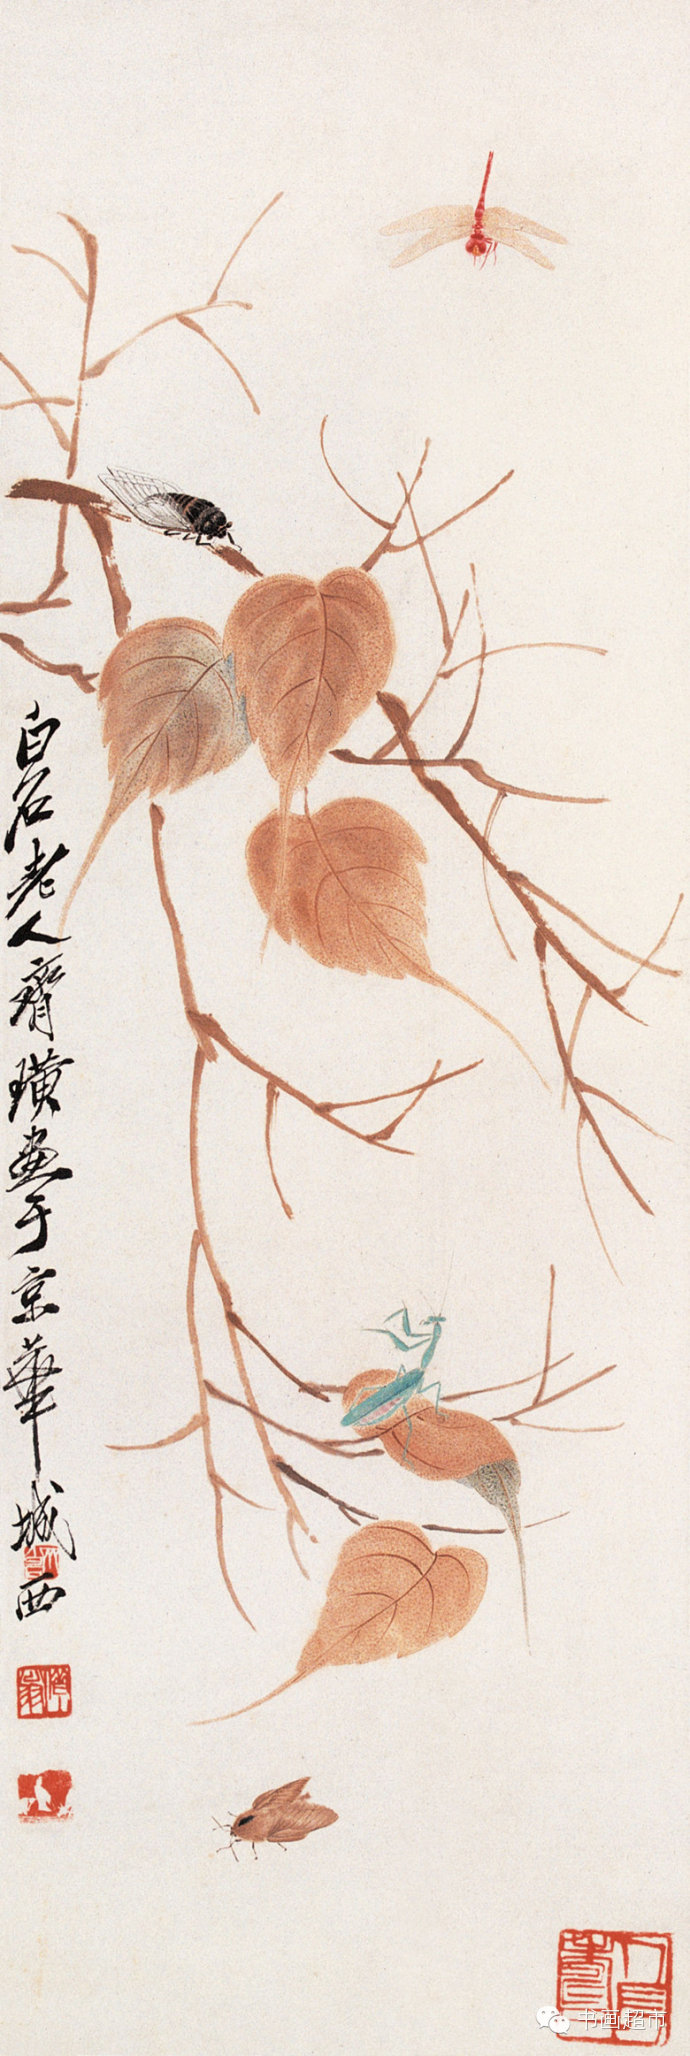 白石老人齊璜畫于京華城西
书画超市